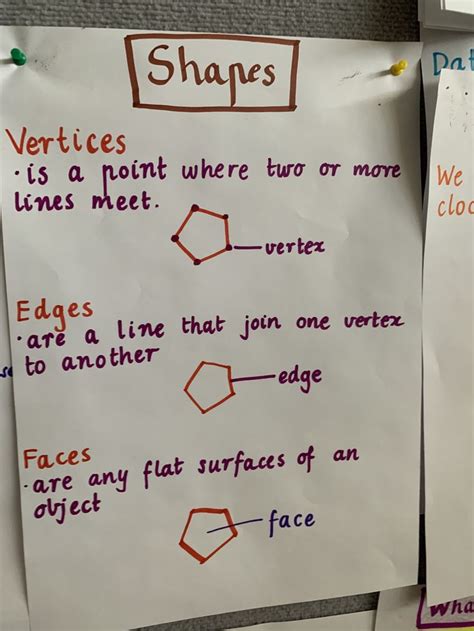 Shapes
Vertices
· is a point where two or more
lines meet.
vertex
Edges
· are a line that join one vertex
to another
edge
Faces
· are any flat surfaces of an
object
face
We